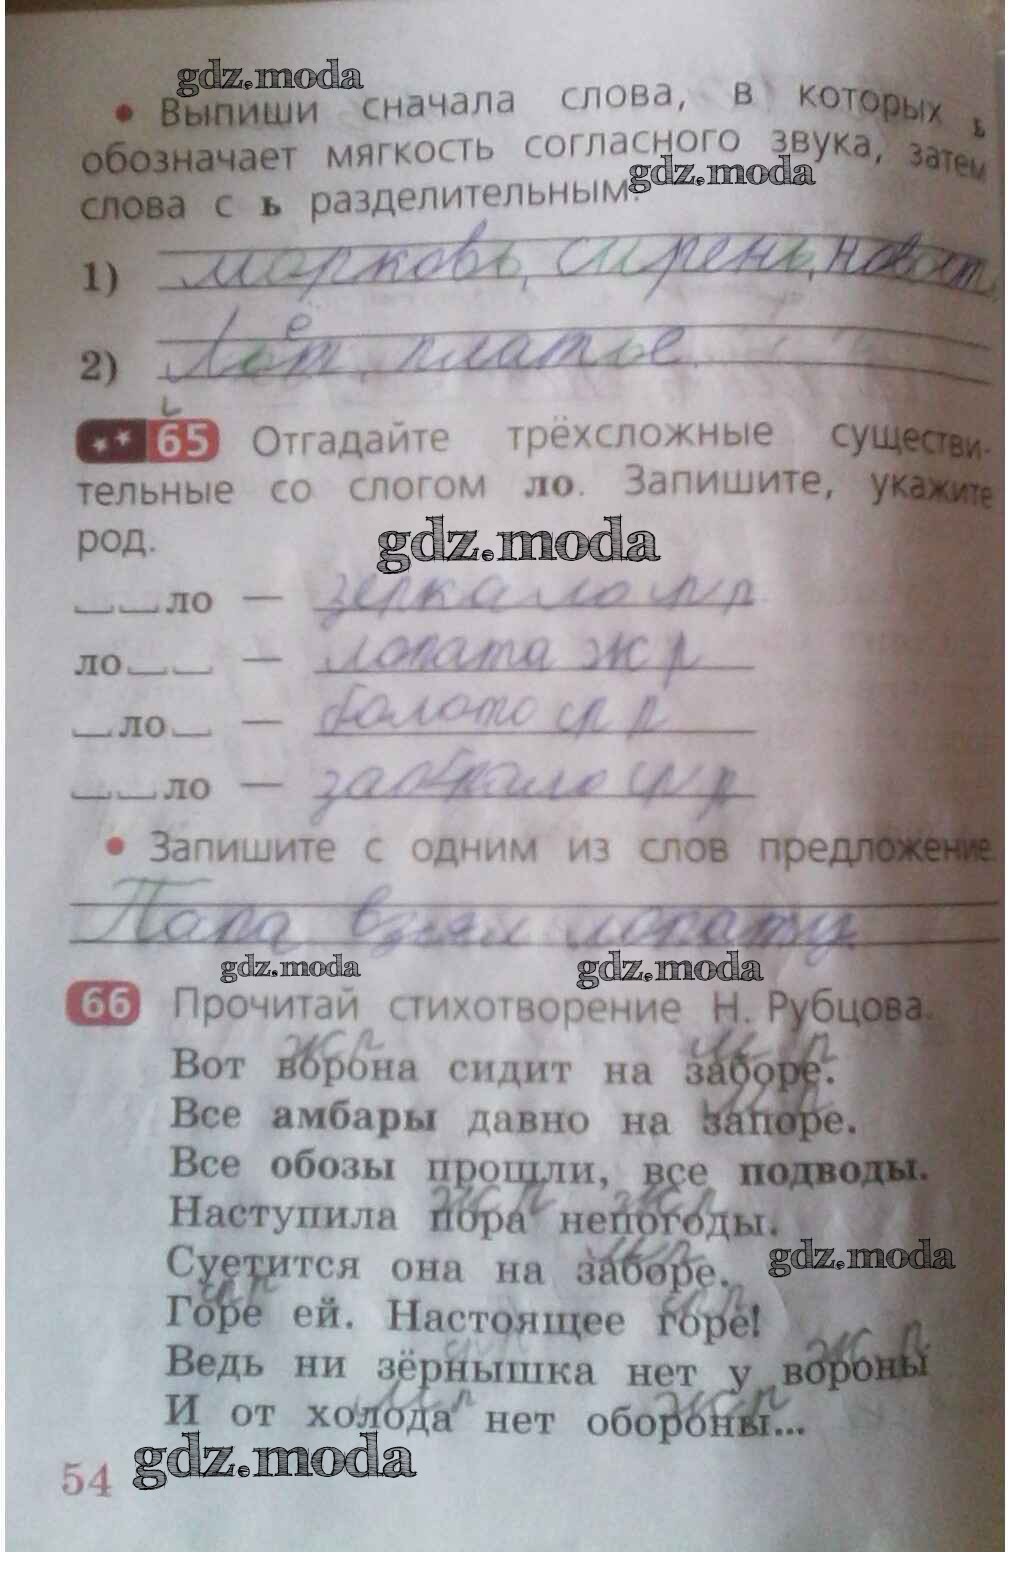 gdz.moda
• Выпиши сначала слова, в которых ь
обозначает мягкость согласного звука, затем
слова с ь разделительным.
gdz.moda
1) морковь, сирень,
2) Льёт, платье.
65 Отгадайте трёхсложные существи-
тельные со слогом ло. Запишите, укажите
род.
gdz.moda
__ __ло — зеркало ср р
ло__ __ — лопата ж р
__ло__ — болото ср р
__ __ло — ср р
• Запишите с одним из слов предложение.
Папа взял лопату
gdz.moda gdz.moda
66 Прочитай стихотворение Н. Рубцова.
ж р м р
Вот ворона сидит на заборе.
м р
Все амбары давно на запоре.
Все обозы прошли, все подводы.
ж р ж р
Наступила пора непогоды.
м р
Суетится она на заборе.
gdz.moda
ср ср
Горе ей. Настоящее горе!
ж р
Ведь ни зёрнышка нет у вороны
м р ж р
И от холода нет обороны...
54 gdz.moda